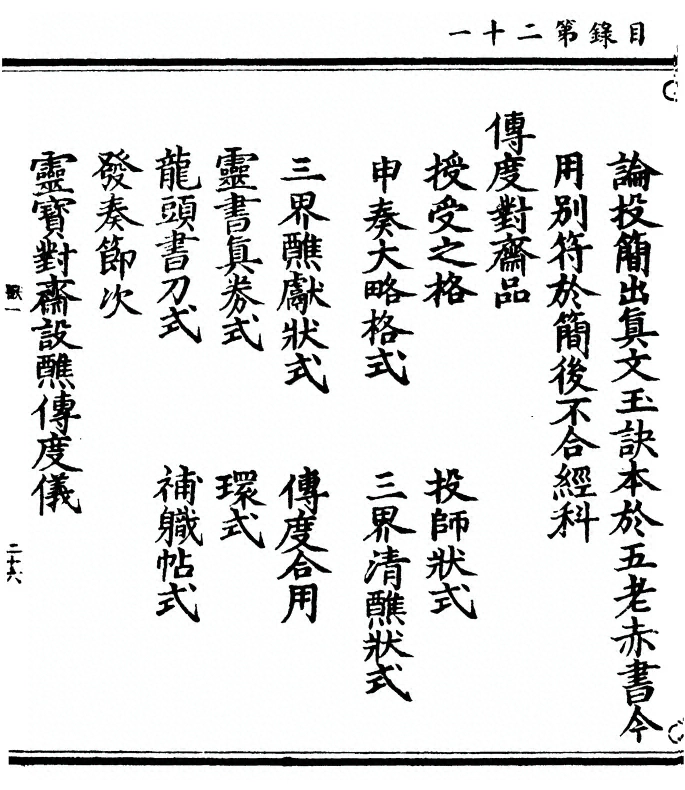 目錄第二十一
論投簡出眞文玉訣本於五老赤書今
用別符於簡後不合經科
傳度對齋品
授受之格 投師狀式
申奏大略格式 三界清醮狀式
三界醮獻狀式 傳度合用
靈書眞券式 環式
龍頭書刀式 補職帖式
發奏節次
靈寶對齋設醮傳度儀
二十六